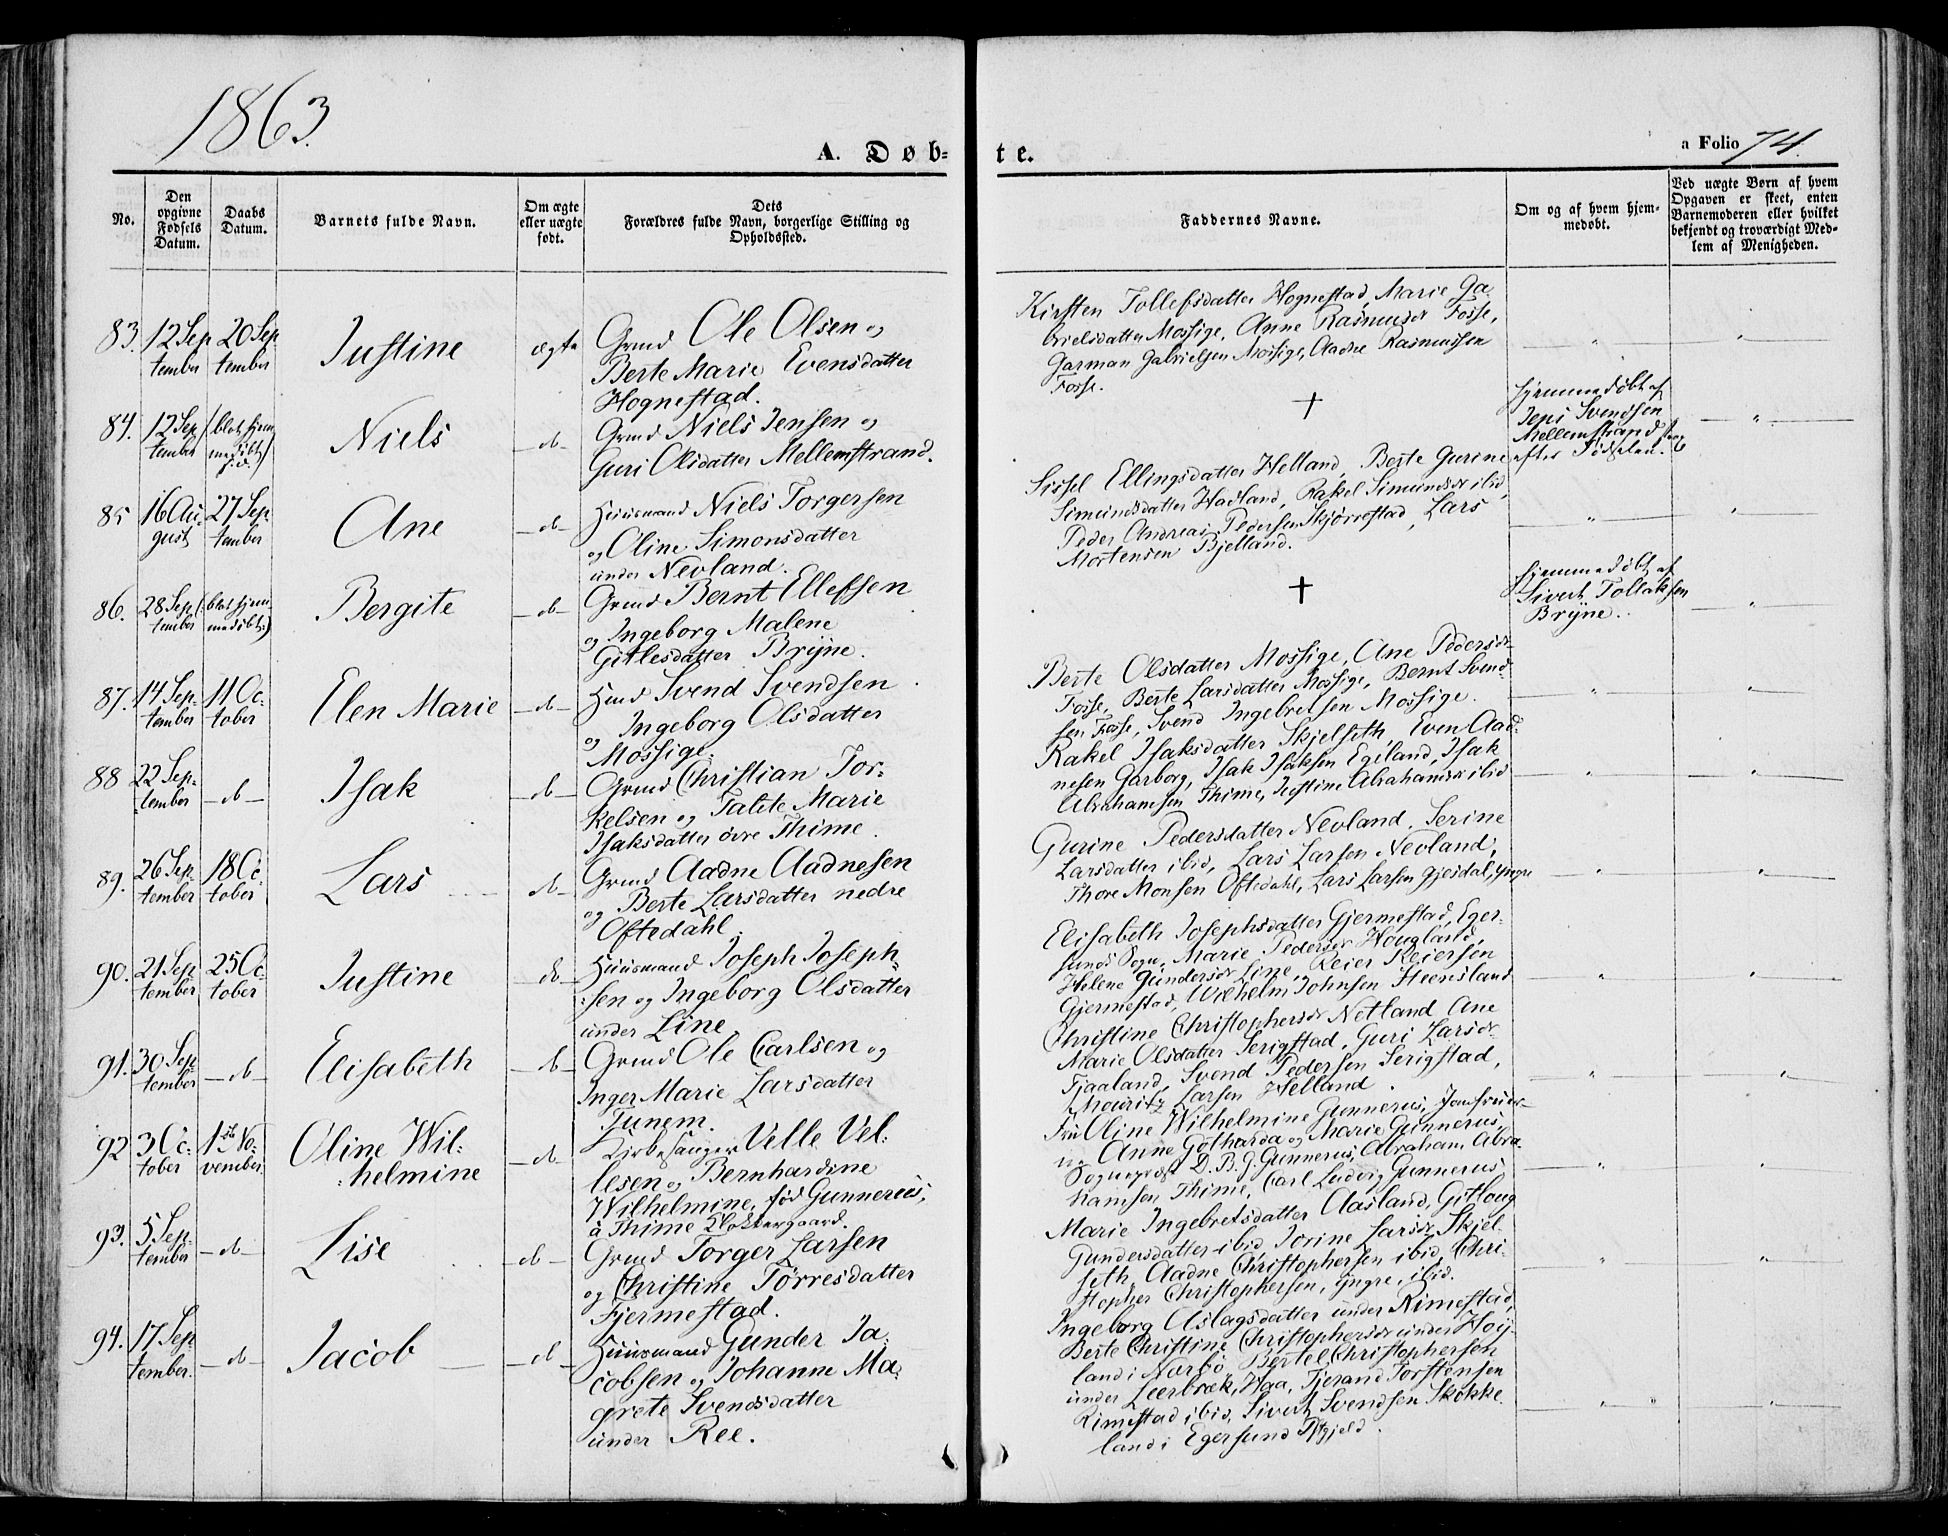 1863.
A. Døb-
te.
a Folio 74.
No.
Den opgivne Fødsels Datum.
Daabs Datum.
Barnets fulde Navn.
Om ægte eller uægte født.
Dets Forældres fulde Navn, borgerlige Stilling og Opholdssted.
Faddernes Navne.
Om og af hvem hjem-
medøbt.
Ved uægte Børn af hvem
Opgaven er skeet, enten
Barnemoderen eller hvilket
bekjendt og troværdigt Med-
lem af Menigheden.
83. 12 Sep
tember
20 Sep
tember
Justine
ægte
Grmd Ole Olsen og
Berte Marie Evensdatter
Hognestad.
Kirsten Tollefsdatter Hognestad, Marie Ga
brielsdatter Mossige, Anne Rasmusdr Fosse,
Garman Gabrielsen Mossige, Aadne Rasmussen
Fosse.
84. 12 Sep
tember
(blot hjem
medøbt)
Niels
d
Grmd Niels Jensen og
Guri Olsdatter Mellemstrand.
+
hjemmedøbt af
Svendsen
Mellemstrand
efter Fødselen.
85 16 Au-
gust
27 Sep
tember
Ane
d
Huusmand Niels Torgersen
og Oline Simonsdatter
under Nevland.
Sissel Ellingsdatter Helland, Berte Gurine
Simundsdatter Hadland, Rakel Simundsdr ibid,
Peder Andreas Pedersen Skjørrestad, Lars
Mortensen Bjelland.
86. 28 Sep
tember
(blot hjem-
medøbt)
Bergite
d
Grmd Bernt Ellefsen
og Ingeborg Malene
Gitlesdatter Bryne.
+
hjemmedøbt af
Sivert Tollaksen
Bryne.
87. 14 Sep-
tember
11 Oc-
tober
Elen Marie
d
Hmd Svend Svendsen
og Ingeborg Olsdatter
Mossige.
Berte Olsdatter Mossige, Ane Pedersdr
Fosse, Berte Larsdatter Mossige, Bernt Svend-
sen Fosse, Svend Ingebretsen Mossige.
88 22 Sep-
tember
d
Isak
d
Grmd Christian Tor-
kelsen og Talete Marie
Isaksdatter øvre Thime.
Rakel Isaksdatter Skjelseth, Even Aad-
nesen Garborg, Isak Isaksen Egeland, Isak
Abrahamsen Thime, Justine Abrahamsdr ibid
89. 26 Sep-
tember
18 Oc-
tober
Lars
d
Grmd Aadne Aadnesen
og Berte Larsdatter nedre
Oftedahl.
Gurine Pedersdatter Nevland, Serine
Larsdatter ibid, Lars Larsen Nevland,
Thore Monsen Oftedahl, Lars Larsen Gjesdal, yngre
90. 21 Sep
tember
25 Oc-
tober
Justine
do
Huusmand Joseph Joseph
sen og Ingeborg Olsdatter
under Line.
Elisabeth Josephsdatter Gjermestad, Eger-
sunds Sogn, Marie Pedersdr Hougland,
Helene Gundersdr Line, Reier Reiersen
Gjermestad, Wilhelm Johnsen Steensland
91. 30 Sep-
tember
d
Elisabeth
d
Grmd Ole Carlsen og
Inger Marie Larsdatter
Tunem.
Christine Christophersdr Netland Ane
Marie Olsdatter Serigstad, Guri Larsdr
Tjaaland, Svend Pedersen Serigstad,
Mauritz Larsen Helland.
92 3 Oc-
tober
1ste No-
vember
Oline Wil-
helmine
d
Kirkesanger Velle Vel-
lesen og Bernhardine
Wilhelmine, fød Gunnerus,
à Thime Klokkergaard.
Fru Oline Wilhelmine Gunnerus, Jomfruer-
ne Anne Gotharda og Marie Gunnerus,
Sogneprest D. B. G. Gunnerus, Abraham Abra
hamsen Thime, Carl Ludvig Gunnerus
93. 5 Sep-
tember
d
Lise
d
Grmd Torger Larsen
og Christine Tørresdatter
Fjermestad.
Marie Ingebretsdatter Aasland, Gitlaug
Gundersdatter ibid, Jorine Larsdr Skjel
seth, Aadne Christophersen ibid, Chri-
stopher Christophersen, yngre, ibid.
94. 17 Sep
tember.
d
Jacob
d
Huusmand Gunder Ja-
cobsen og Johanne Ma-
grete Svendsdatter
under Ree.
Ingeborg Aslagsdatter under Rimestad,
Berte Christine Christophersdr under Høy-
land i Narbø, Bertel Christophersen
under Leerbræk, Haa, Tjerand Torstensen
Rimestad ibid, Sivert Svendsen Skekke
land i Egersund Pstgjeld.